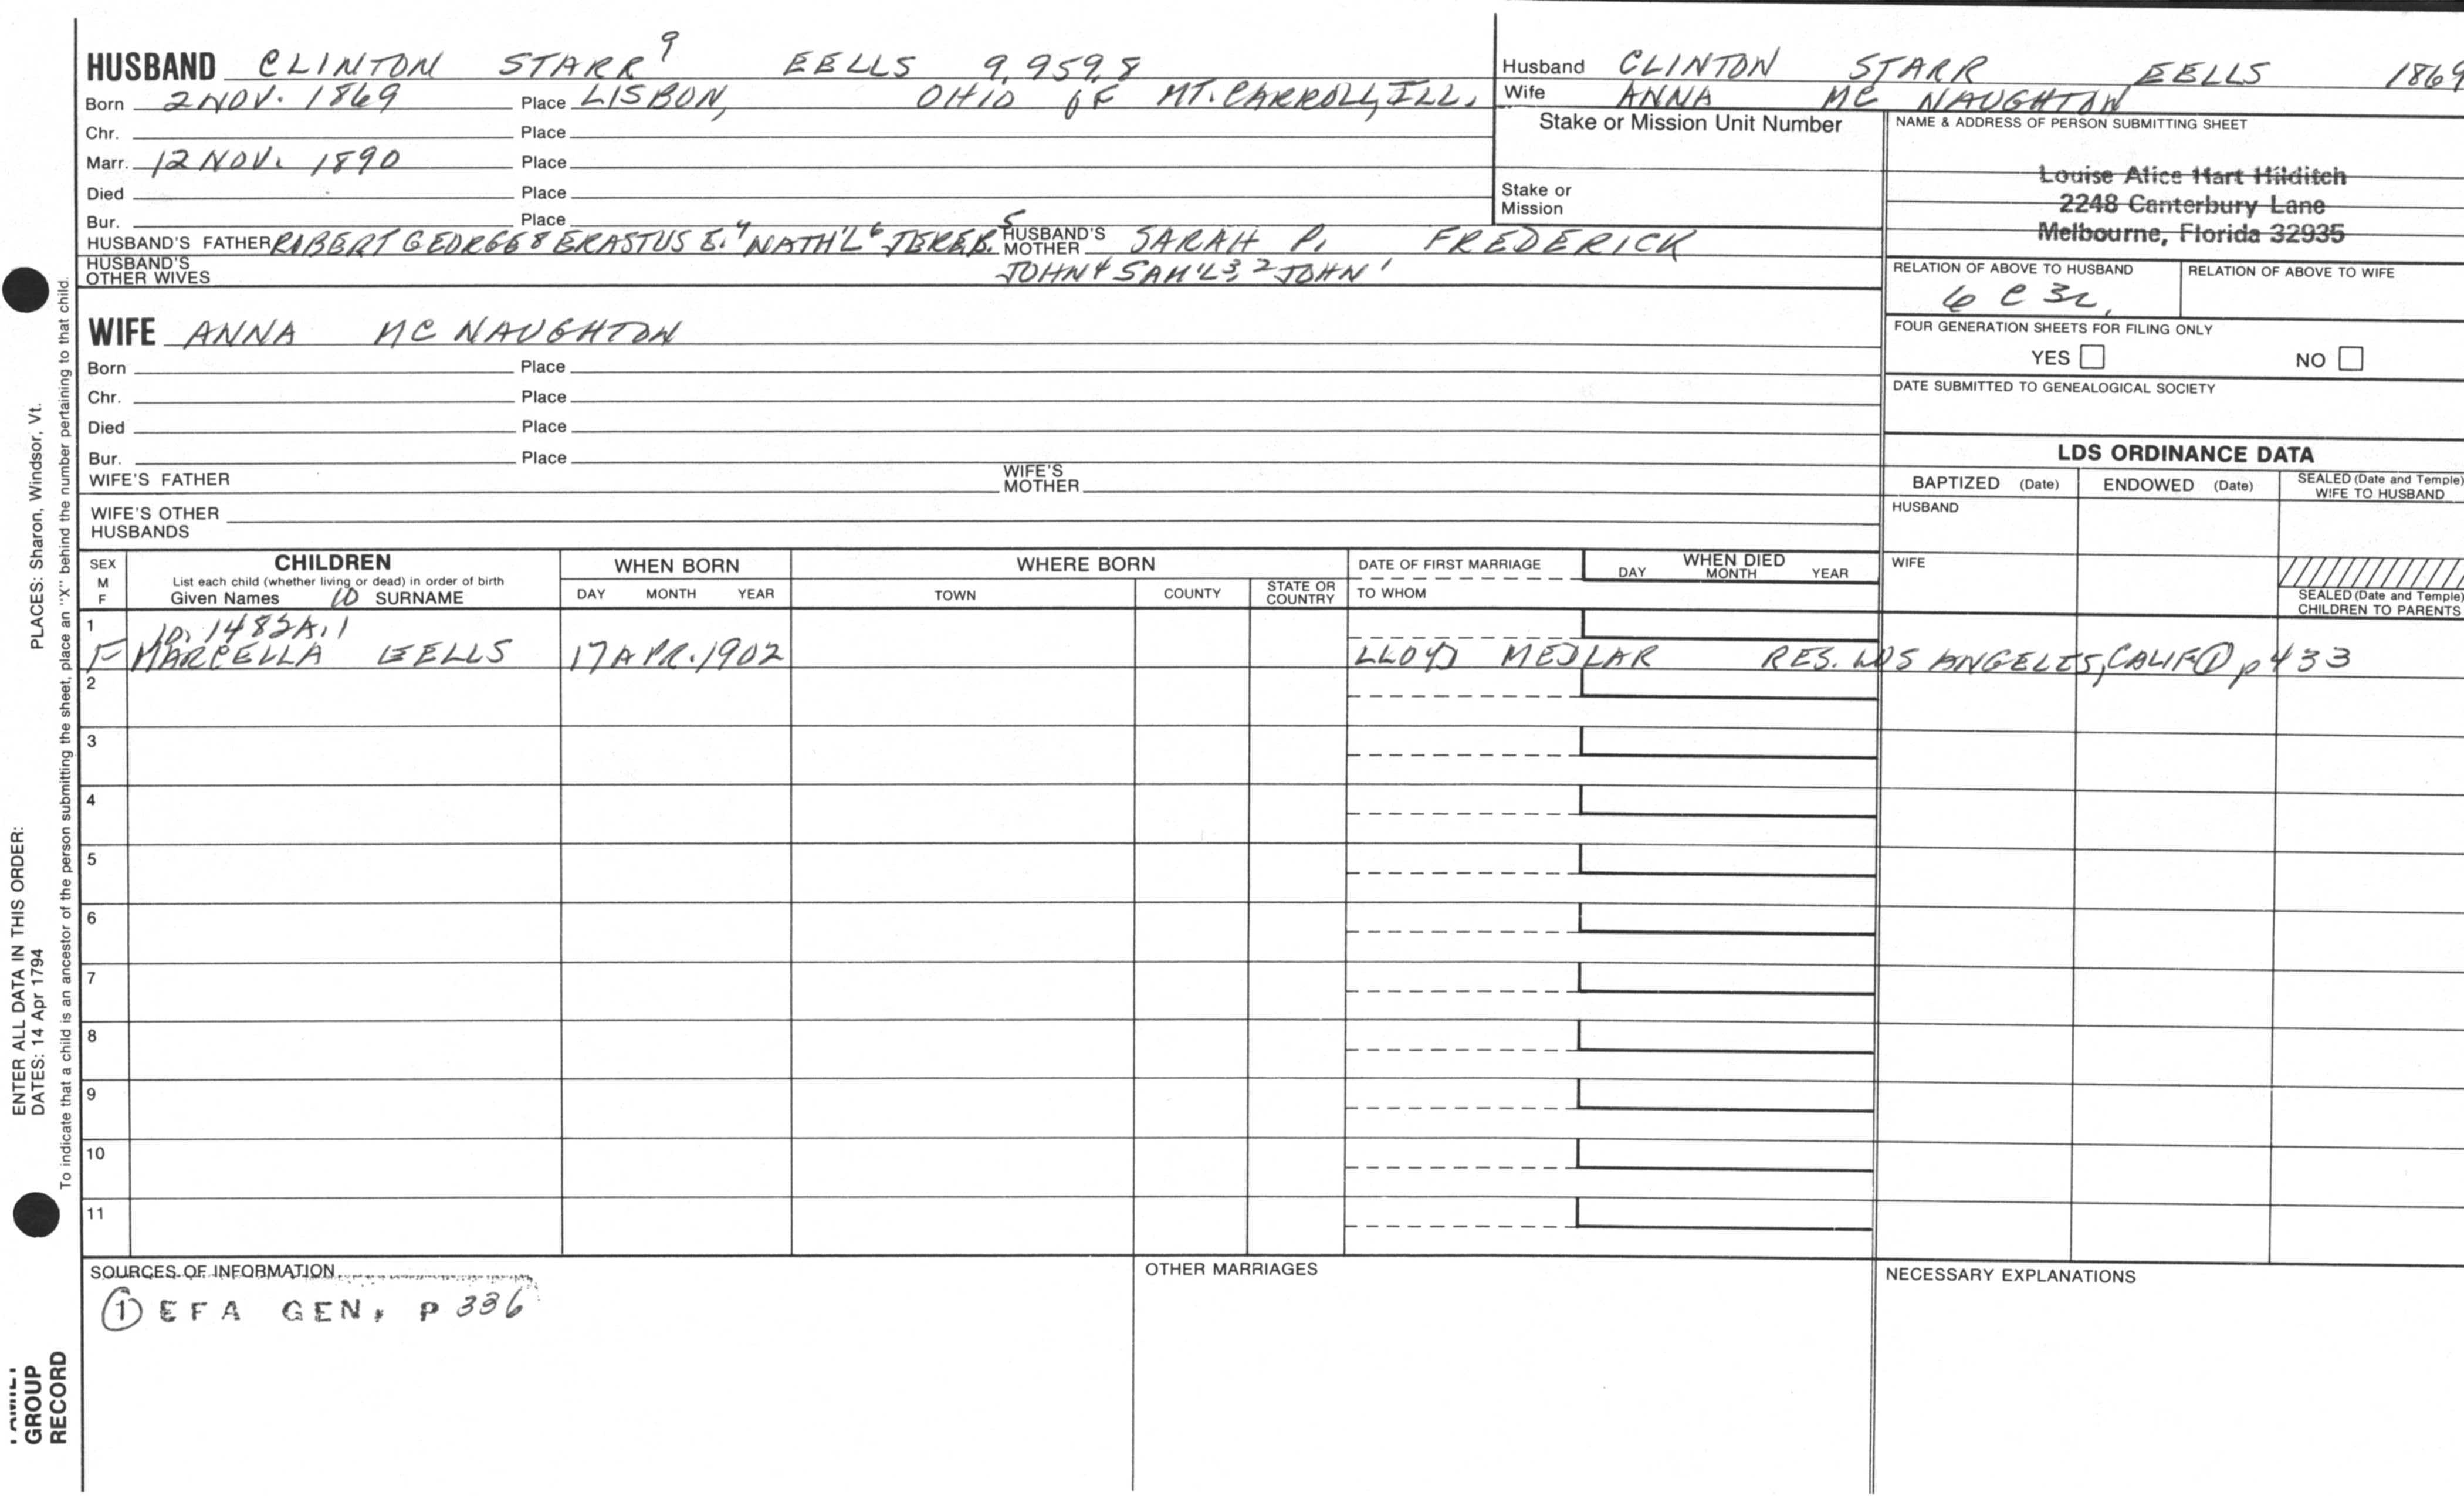 HUSBAND CLINTON STARR⁹ EELLS 9.959.8
Born 2 NOV. 1869 Place LISBON, OHIO OF MT. CARROLL, ILL.
Chr. Place
Marr. 12 NOV. 1890 Place
Died Place
Bur. Place
HUSBAND'S FATHER ROBERT GEORGE⁸ ERASTUS E.⁷ NATH'L⁶ JEREB.⁵ HUSBAND'S MOTHER SARAH P. FREDERICK
HUSBAND'S OTHER WIVES JOHN⁴ SAM'L³,² JOHN¹
Husband CLINTON STARR EELLS 1869
Wife ANNA MC NAUGHTON
Stake or Mission Unit Number
Stake or Mission
NAME & ADDRESS OF PERSON SUBMITTING SHEET
Louise Alice Hart Hilditch
2248 Canterbury Lane
Melbourne, Florida 32935
RELATION OF ABOVE TO HUSBAND RELATION OF ABOVE TO WIFE
6 C 3R
FOUR GENERATION SHEETS FOR FILING ONLY
YES NO
DATE SUBMITTED TO GENEALOGICAL SOCIETY
WIFE ANNA MC NAUGHTON
Born Place
Chr. Place
Died Place
Bur. Place
WIFE'S FATHER WIFE'S MOTHER
WIFE'S OTHER HUSBANDS
LDS ORDINANCE DATA
BAPTIZED (Date) ENDOWED (Date) SEALED (Date and Temple) WIFE TO HUSBAND
HUSBAND
WIFE
SEALED (Date and Temple) CHILDREN TO PARENTS
SEX M F CHILDREN WHEN BORN WHERE BORN DATE OF FIRST MARRIAGE WHEN DIED
List each child (whether living or dead) in order of birth
Given Names 10 SURNAME DAY MONTH YEAR TOWN COUNTY STATE OR COUNTRY TO WHOM DAY MONTH YEAR
1 10.1482A.1
F MARCELLA EELLS 17 APR. 1902 LLOYD MEDLAR RES. LOS ANGELES, CALIF ① p 433
2
3
4
5
6
7
8
9
10
11
SOURCES OF INFORMATION OTHER MARRIAGES NECESSARY EXPLANATIONS
① EFA GEN. P 336
ENTER ALL DATA IN THIS ORDER:
DATES: 14 Apr 1794 PLACES: Sharon, Windsor, Vt.
To indicate that a child is an ancestor of the person submitting the sheet, place an "X" behind the number pertaining to that child.
FAMILY
GROUP
RECORD